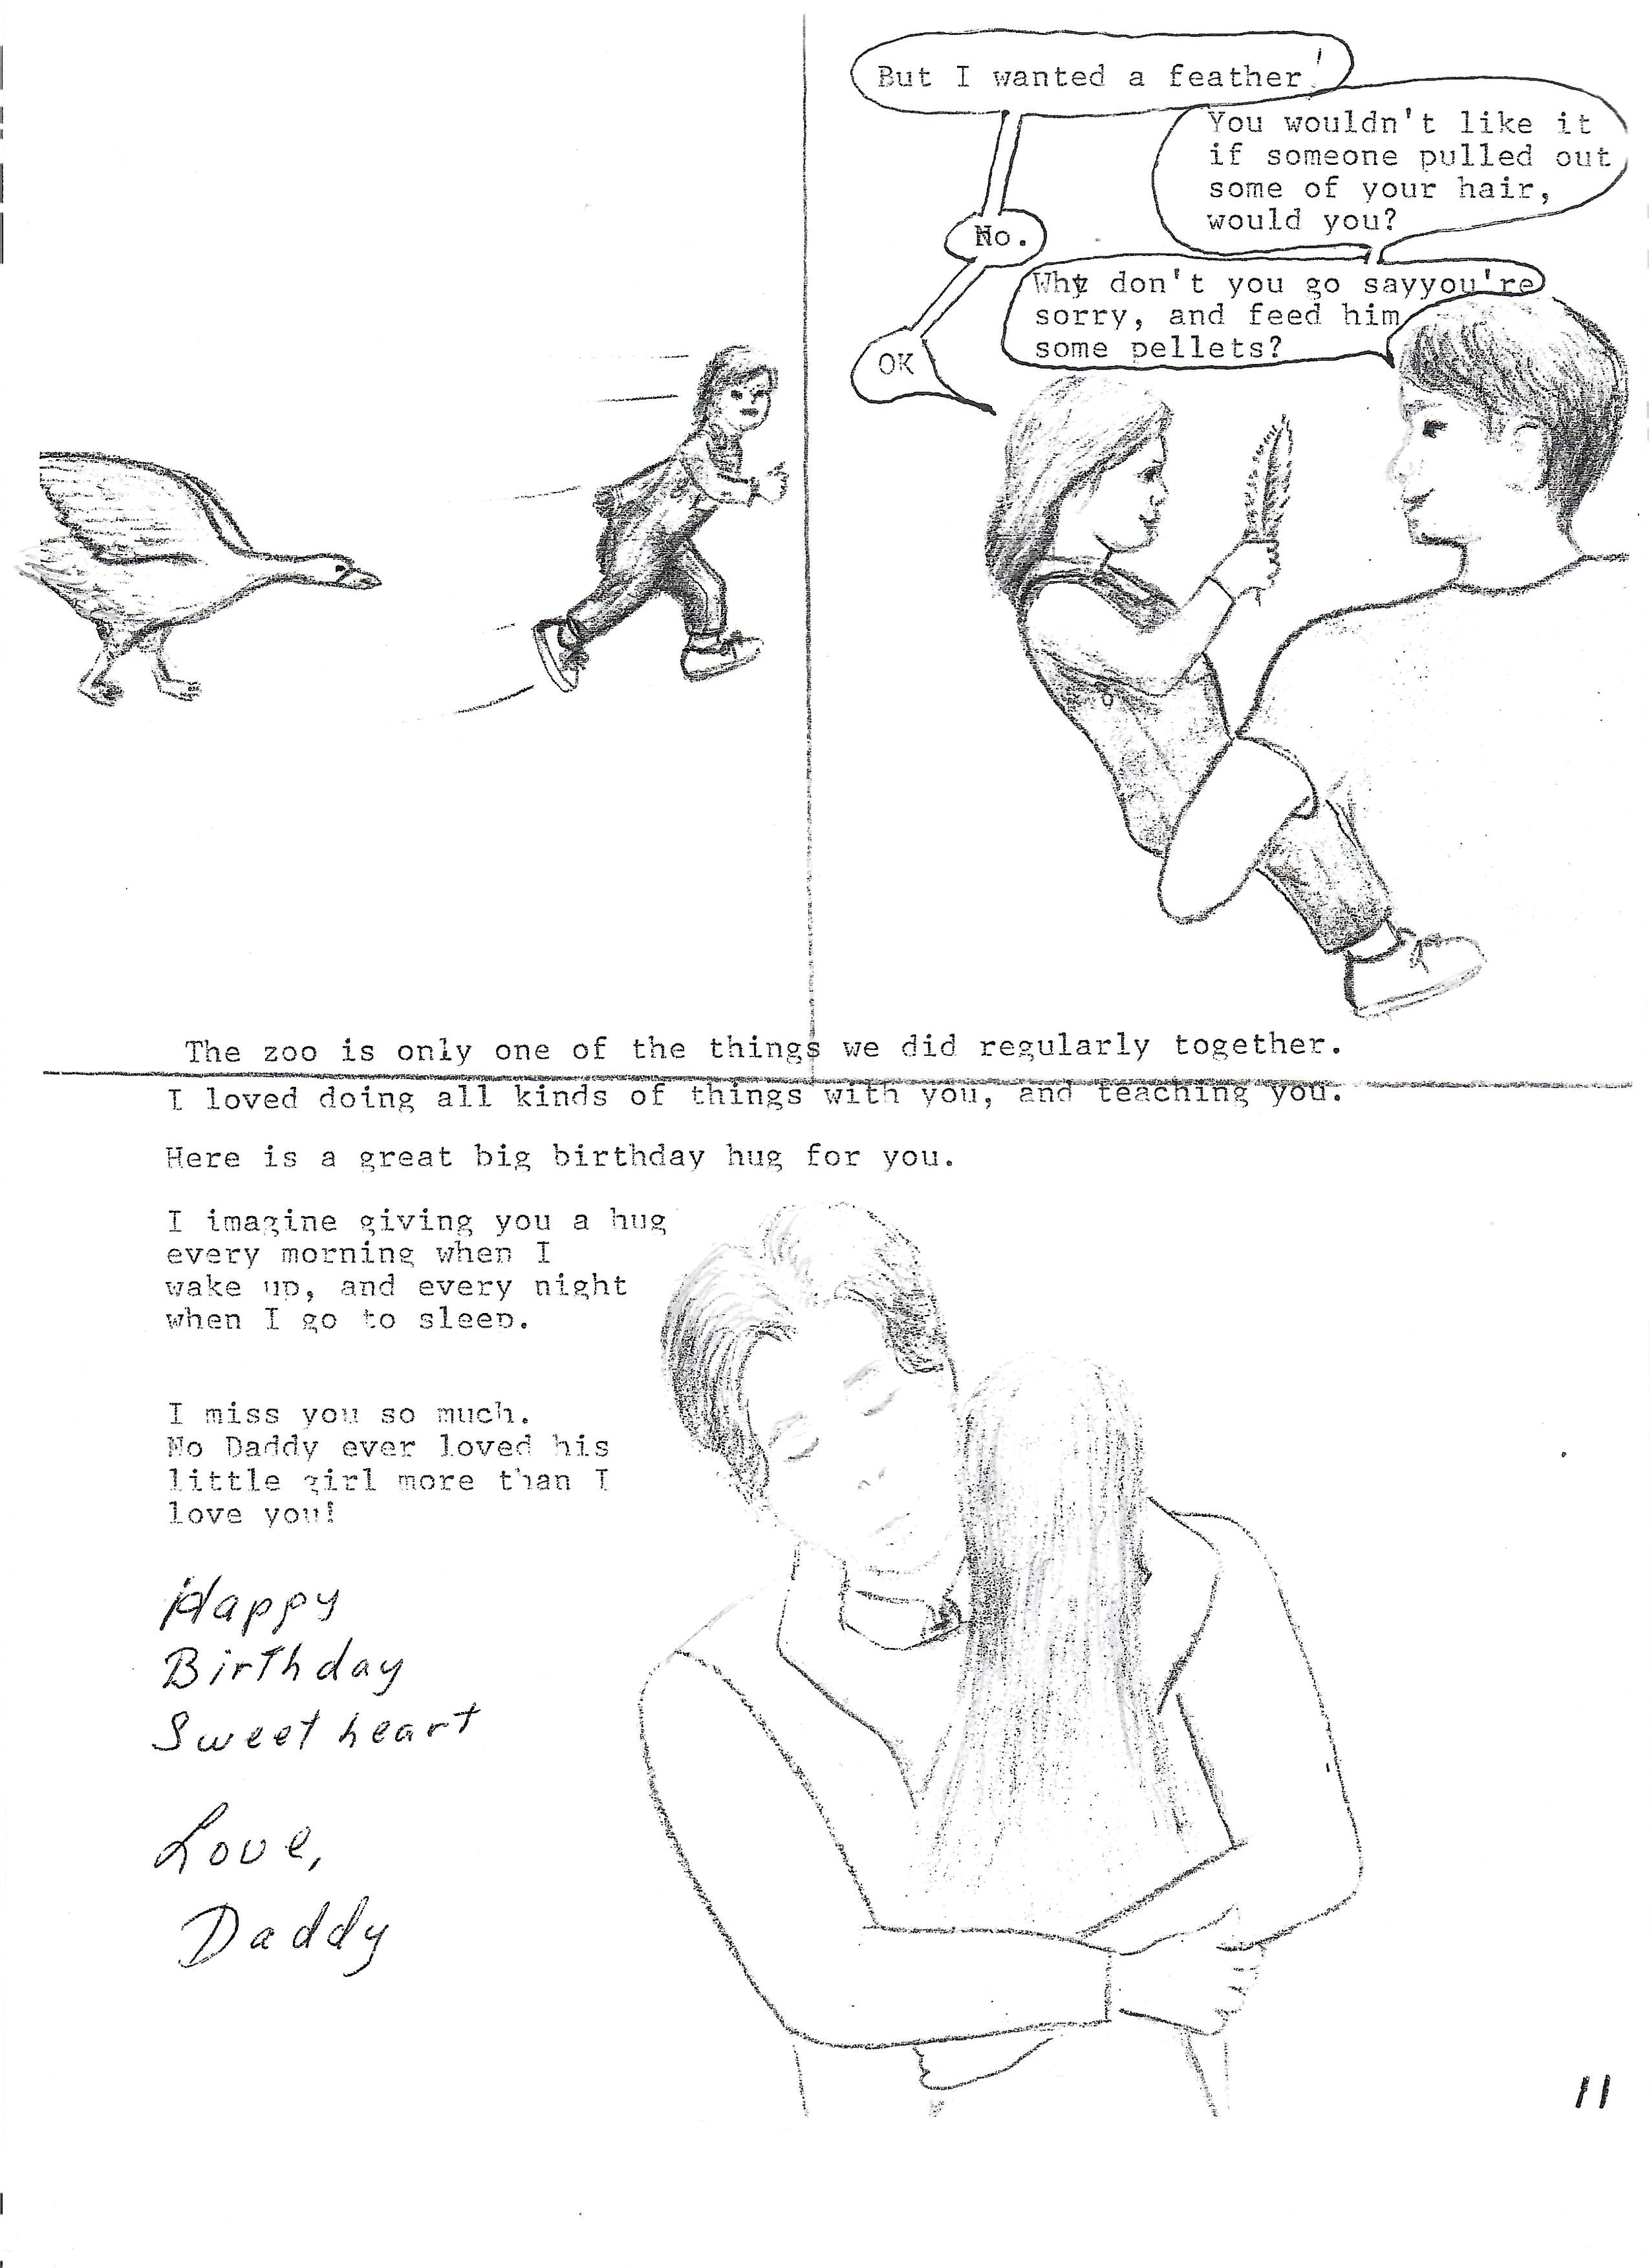 But I wanted a feather!
You wouldn't like it
if someone pulled out
some of your hair,
would you?
No.
Why don't you go sayyou're
sorry, and feed him
some pellets?
OK
The zoo is only one of the things we did regularly together.
I loved doing all kinds of things with you, and teaching you.
Here is a great big birthday hug for you.
I imagine giving you a hug
every morning when I
wake up, and every night
when I go to sleep.
I miss you so much.
No Daddy ever loved his
little girl more than I
love you!
Happy
Birthday
Sweet heart
Love,
Daddy
11